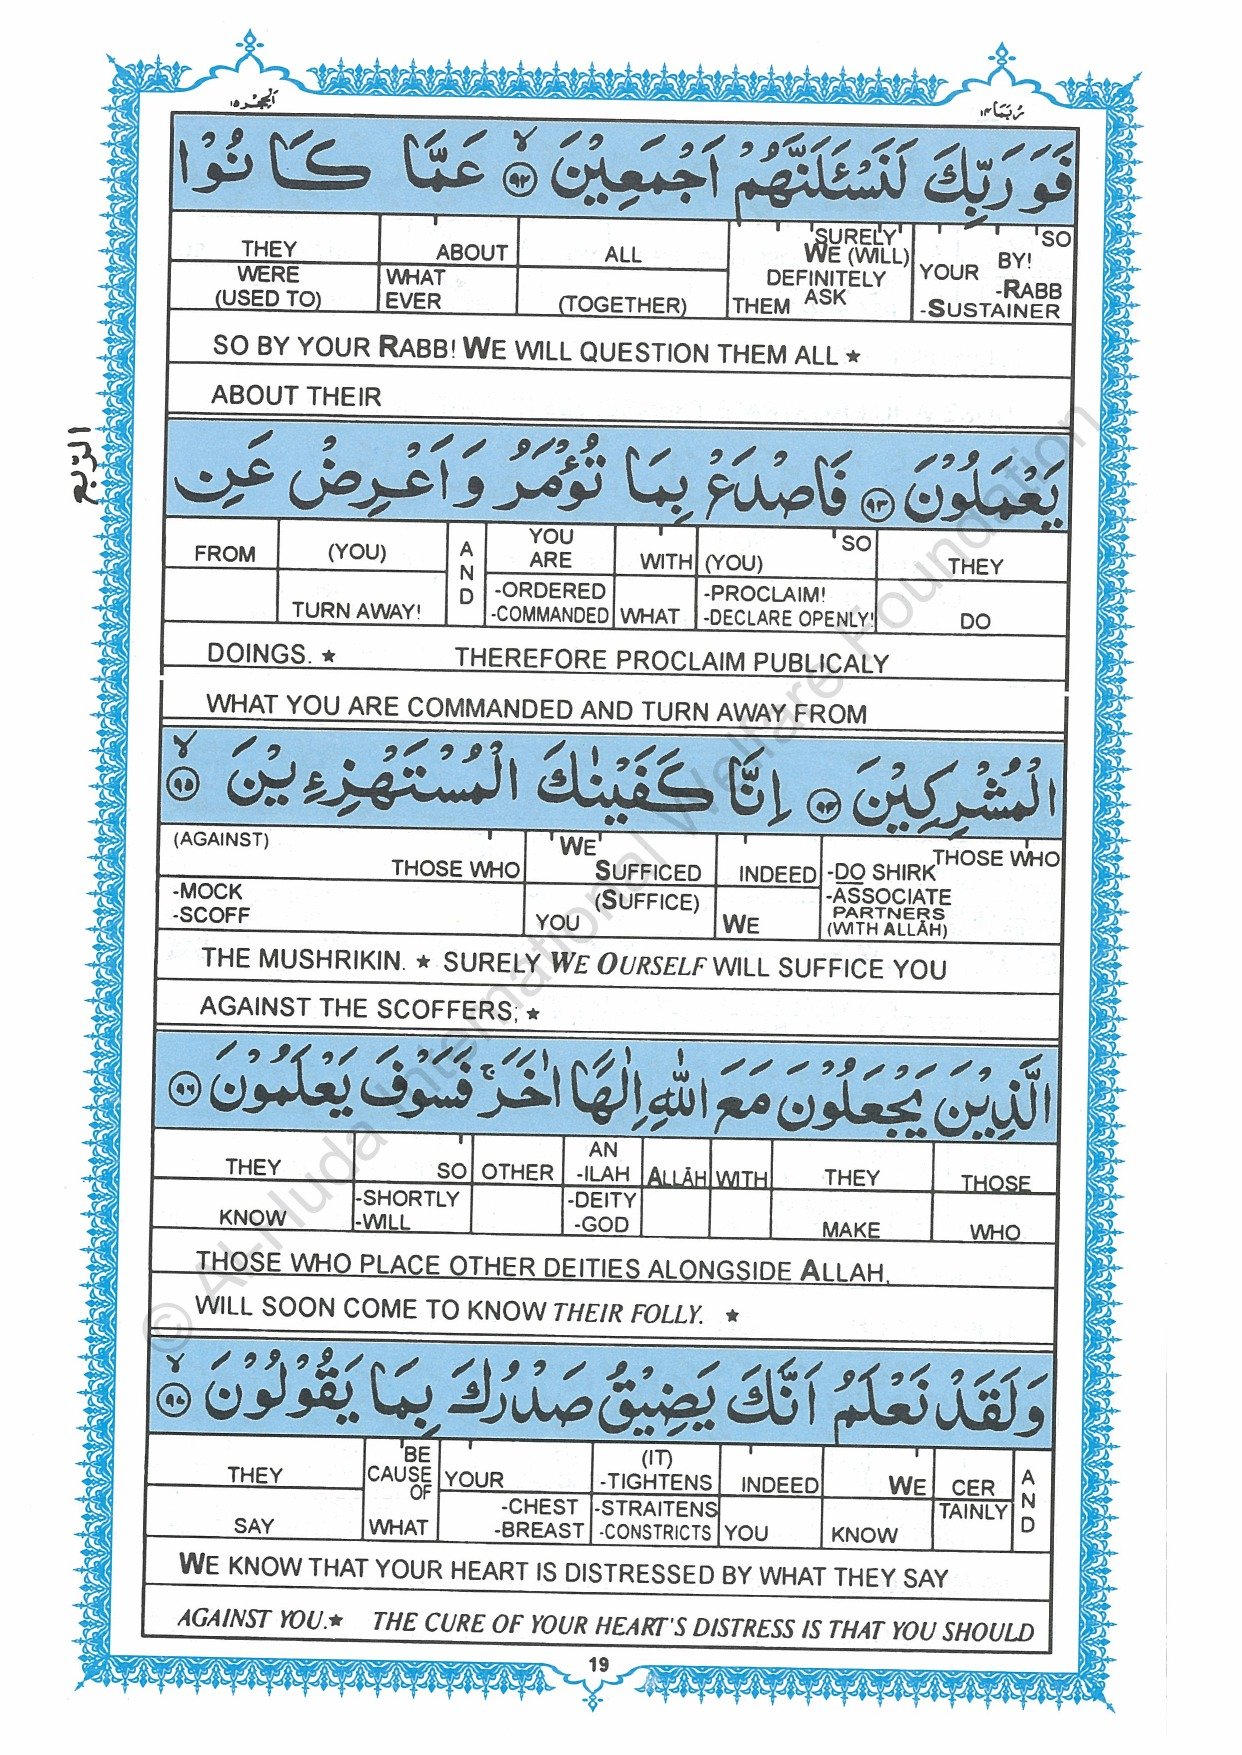 الحجر ١٥
ربما ١٤
فَوَرَبِّكَ لَنَسْـَٔلَنَّهُمْ اَجْمَعِيْنَ ۙ ﴿٩٢﴾ عَمَّا كَانُوْا
SO BY! YOUR -RABB -SUSTAINER
SURELY WE (WILL) DEFINITELY ASK THEM
ALL (TOGETHER)
ABOUT WHAT EVER
THEY WERE (USED TO)
SO BY YOUR RABB! WE WILL QUESTION THEM ALL ★
ABOUT THEIR
الربع
يَعْمَلُوْنَ ﴿٩٣﴾ فَاصْدَعْ بِمَا تُؤْمَرُ وَاَعْرِضْ عَنِ
THEY DO
SO (YOU) -PROCLAIM! -DECLARE OPENLY!
WITH WHAT
YOU ARE -ORDERED -COMMANDED
AND
(YOU) TURN AWAY!
FROM
DOINGS. ★ THEREFORE PROCLAIM PUBLICALY
WHAT YOU ARE COMMANDED AND TURN AWAY FROM
الْمُشْرِكِيْنَ ﴿٩٤﴾ اِنَّا كَفَيْنٰكَ الْمُسْتَهْزِءِيْنَ ۙ ﴿٩٥﴾
THOSE WHO -DO SHIRK -ASSOCIATE PARTNERS (WITH ALLĀH)
INDEED WE
WE SUFFICED (SUFFICE) YOU
(AGAINST) THOSE WHO -MOCK -SCOFF
THE MUSHRIKIN. ★ SURELY WE OURSELF WILL SUFFICE YOU
AGAINST THE SCOFFERS; ★
الَّذِيْنَ يَجْعَلُوْنَ مَعَ اللّٰهِ اِلٰهًا اٰخَرَ ۚ فَسَوْفَ يَعْلَمُوْنَ ﴿٩٦﴾
THOSE WHO
THEY MAKE
WITH
ALLĀH
AN -ILAH -DEITY -GOD
OTHER
SO -SHORTLY -WILL
THEY KNOW
THOSE WHO PLACE OTHER DEITIES ALONGSIDE ALLAH,
WILL SOON COME TO KNOW THEIR FOLLY. ★
وَلَقَدْ نَعْلَمُ اَنَّكَ يَضِيْقُ صَدْرُكَ بِمَا يَقُوْلُوْنَ ۙ ﴿٩٧﴾
AND
CERTAINLY
WE KNOW
INDEED YOU
(IT) -TIGHTENS -STRAITENS -CONSTRICTS
YOUR -CHEST -BREAST
BE CAUSE OF WHAT
THEY SAY
WE KNOW THAT YOUR HEART IS DISTRESSED BY WHAT THEY SAY
AGAINST YOU.★ THE CURE OF YOUR HEART'S DISTRESS IS THAT YOU SHOULD
19
© Al-Huda International Welfare Foundation